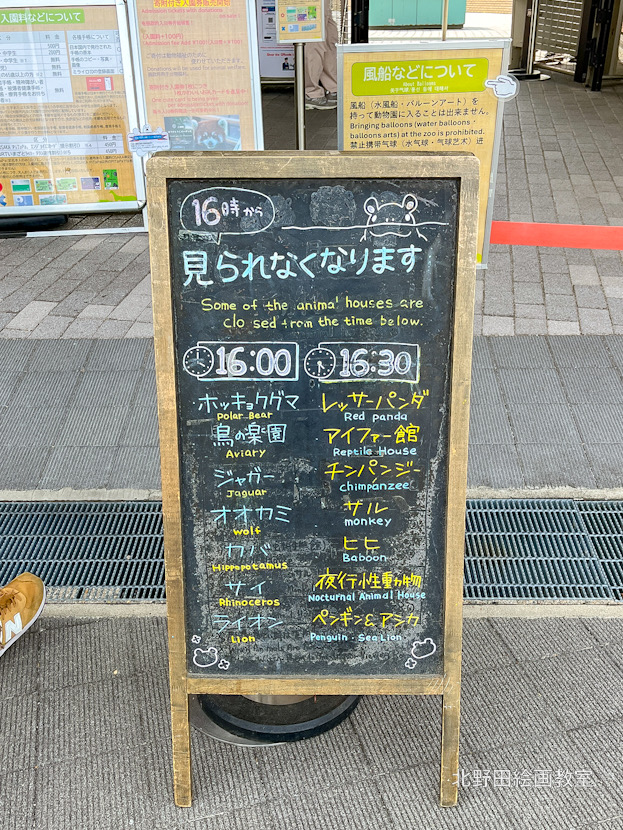 料金などについて
寄附付き入園券販売開始
風船などについて
About Balloons
风船（水風船・バルーンアート）を
持って動物園に入ることは出来ません。
Bringing balloons (water balloons・
balloons arts) at the zoo is prohibited.
禁止携带气球（水气球・气球艺术）进
16時から
見られなくなります
Some of the animal houses are
clo sed from the time below.
16:00
16:30
ホッキョクグマ
Polar Bear
レッサーパンダ
Red panda
鳥の楽園
Aviary
アイファー館
Reptile House
ジャガー
Jaguar
チンパンジー
chimpanzee
オオカミ
wolf
サル
monkey
カバ
Hippopotamus
ヒヒ
Baboon
サイ
Rhinoceros
夜行性動物
Nocturnal Animal House
ライオン
Lion
ペンギン&アシカ
Penguin・Sea Lion
北野田絵画教室